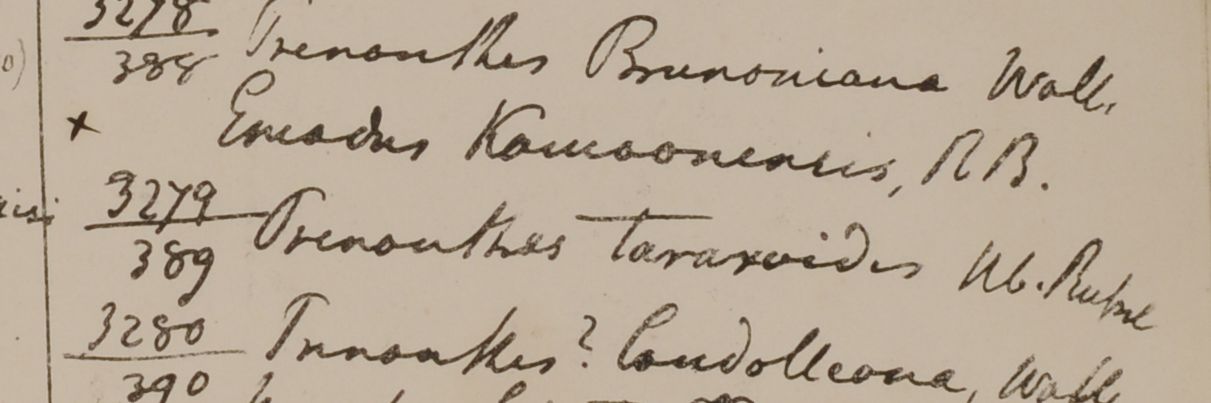 3278 Prenanthes Brunoniana Wall.
388
x Emodus Kamaonensis, R B.
3279 Prenanthes taraxoides
389
3280 Prenanthes? Candolleana, Wall
390